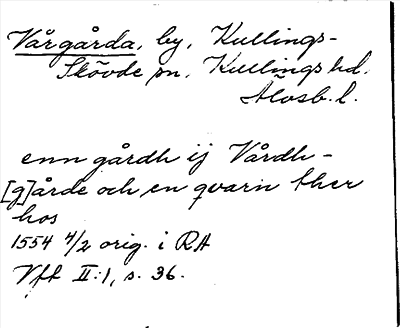 Vårgårda, by, Kullings-
Skövde sn, Kullings hd.
Älvsb. l.
enn gårdh ij Vårdh-
[g]årde och en qvarn ther
hos
1554 4/2 orig. i RA
Vft II:1, s. 36.